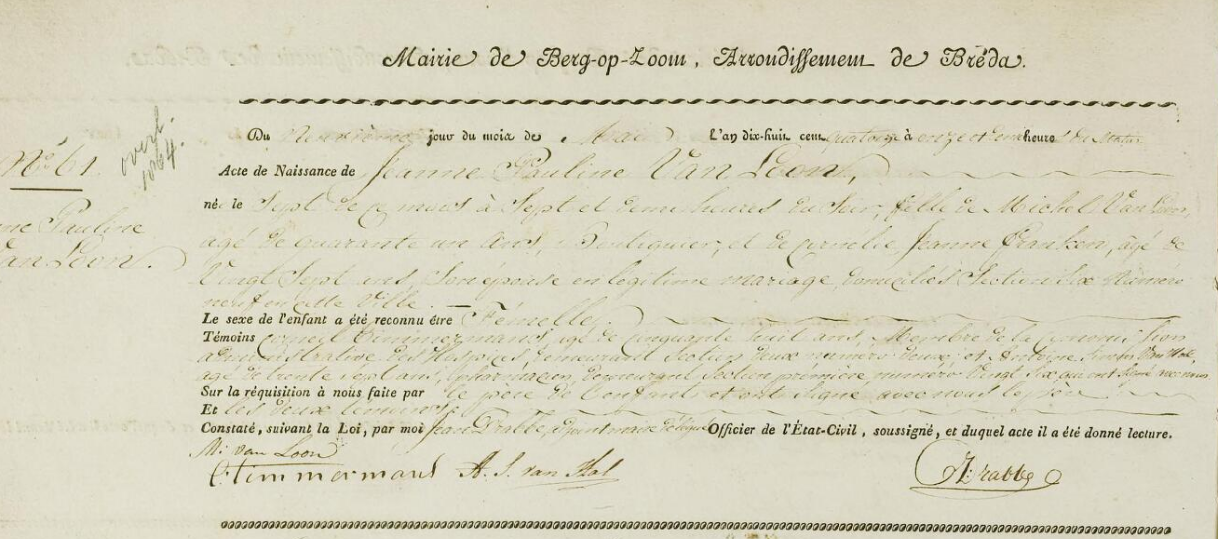 Mairie de Berg-op-Zoom, Arrondissement de Bréda.
overl.
1864.
Nº 61
Du Neuvième jour du mois de Mars L'an dix-huit cent quatorze à onze et demi heures du Matin
Acte de Naissance de Jeanne Pauline Van Loon,
né le Sept de ce mois à Sept et demi heures du Soir, fille de Michel Van Loon,
ne Pauline
âgé de quarante un Ans, Boutiquier, et de Cornélie Jeanne Franken, âgé de
Van Loon.
Vingt Sept ans, Son épouse en légitime mariage, domiciliés Section Six Numero
neuf en cette Ville.
Le sexe de l'enfant a été reconnu être Fémelle,
Témoins Corneil Timmermans, agé de cinquante huit ans, Membre de la Commission
administrative des Hospices, demeurant Section deux numero deux, et Antoine Van Hal,
agé de trente Sept ans, pharmacien, demeurant Section première, numero vingt Six qui ont signé avec nous
Sur la réquisition à nous faite par le père de l'enfant, et ont Signé avec nous le père
Et les deux temoins.
Constaté, suivant la Loi, par moi Jean Drabbe, adjoint maire délégué Officier de l'État-Civil, soussigné, et duquel acte il a été donné lecture.
M: van Loon
C Timmermans A. S. van Hal
Drabbe